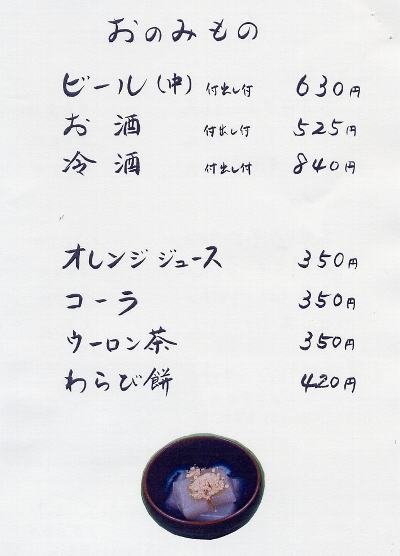 おのみもの
ビール（中）付出し付 630円
お酒 付出し付 525円
冷酒 付出し付 840円
オレンジジュース 350円
コーラ 350円
ウーロン茶 350円
わらび餅 420円